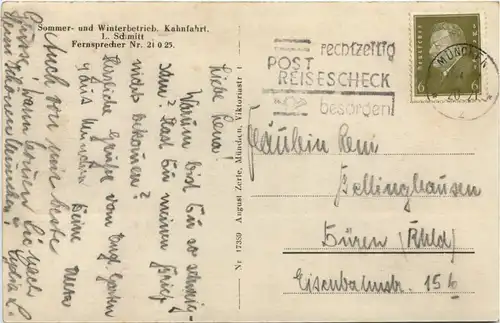 Sommer- und Winterbetrieb. Kahnfahrt.
L. Schmitt
Fernsprecher Nr. 21 0 25.
Liebe Lena!
Warum bist Du so schweig-
sam? Hast Du meinen Brief
nicht bekommen?
Herzliche Grüße vom Engl. Garten
aus München Deine
Auch von mir beste
Grüße, wann kommen Sie nach
dem schönen München?
Nr. 17389 August Zerle, München, Viktoriastr. 1
rechtzeitig
POST
REISESCHECK
besorgen
MÜNCHEN
6 6
Fräulein Leni
Bellinghausen
Düren (Rhld)
Eisenbahnstr. 15b